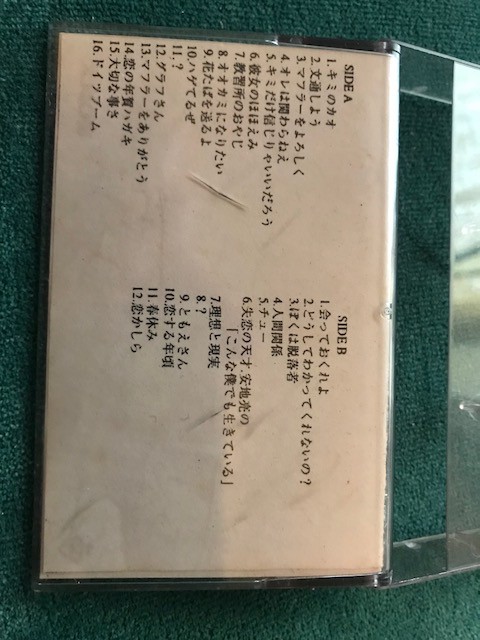 SIDE A
1.キミのカオ
2.文通しよう
3.マフラーをよろしく
4.オレは関わらねえ
5.キミだけ信じりゃいいだろう
6.彼女のほほえみ
7.教習所のおやじ
8.オオカミになりたい
9.花たばを送るよ
10.ハゲてるぜ
11.?
12.グラフさん
13.マフラーをありがとう
14.恋の年賀ハガキ
15.大切な事さ
16.ドイツブーム
SIDE B
1.会っておくれよ
2.どうしてわかってくれないの?
3.ぼくは脱落者
4.人間関係
5.チュー
6.失恋の天才.安地亮の
「こんな僕でも生きている」
7.理想と現実
8.?
9.ともえさん
10.恋する年頃
11.春休み
12.恋かしら